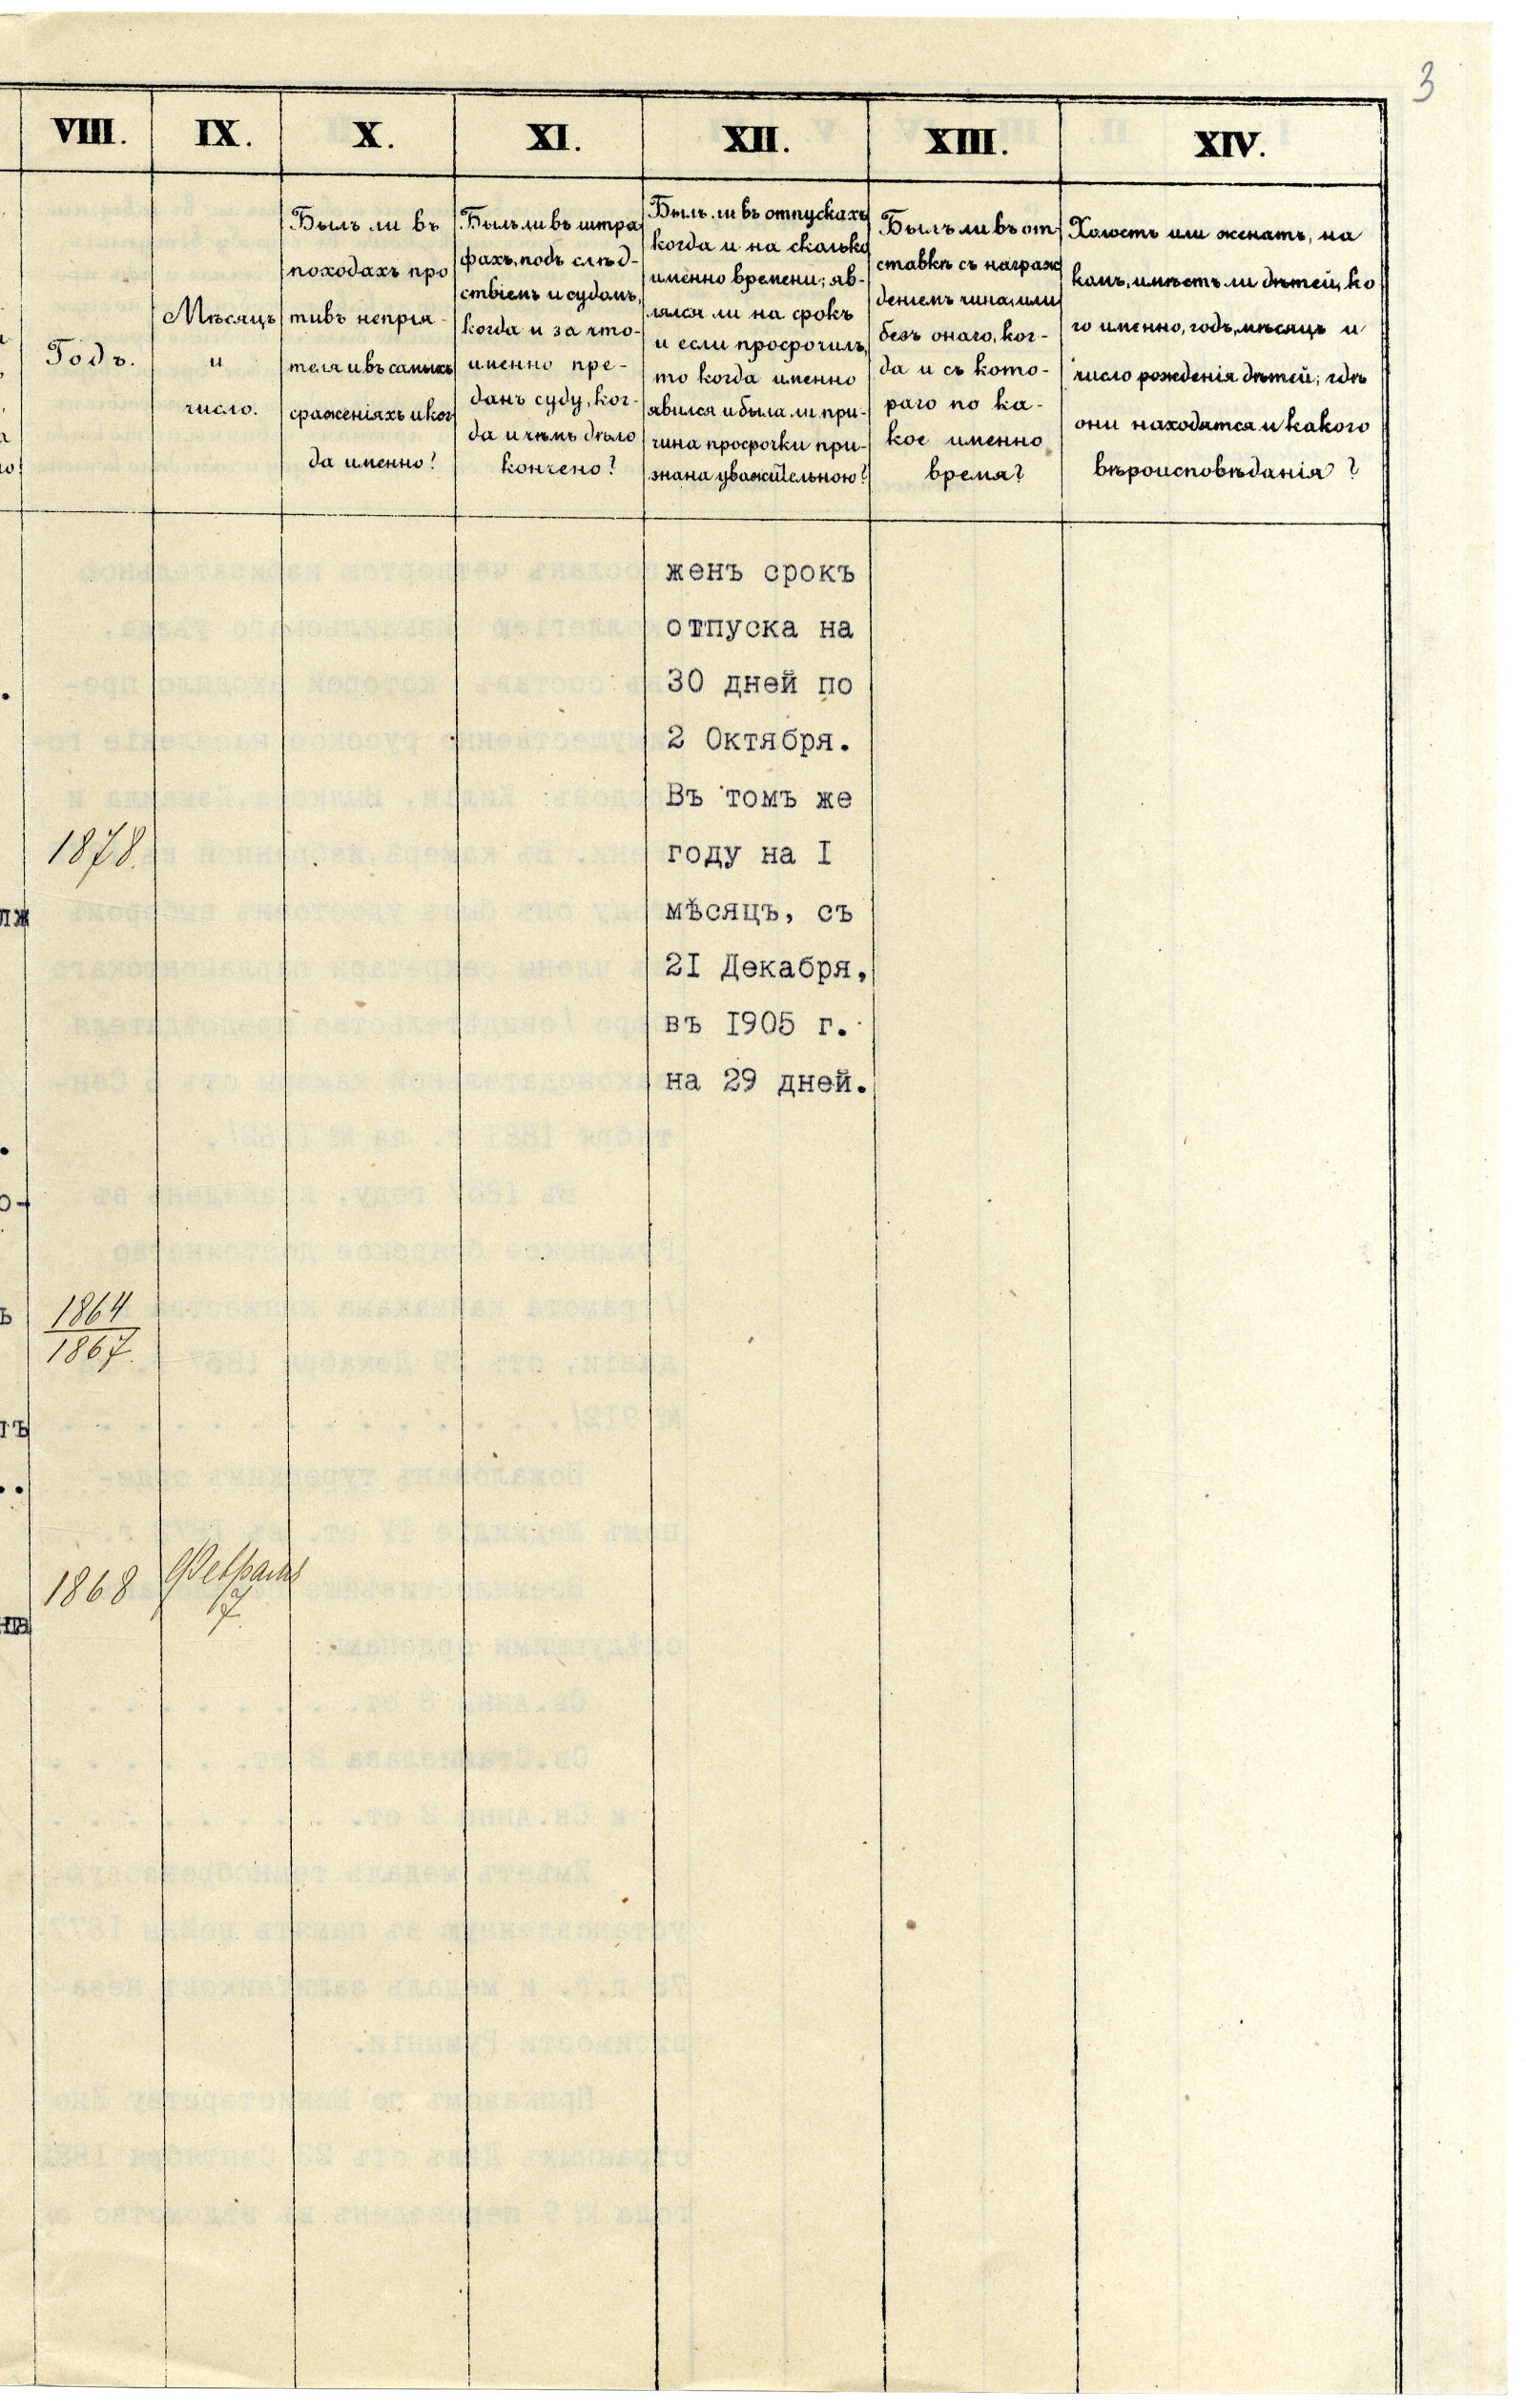 3
VIII. IX. X. XI. XII. XIII. XIV.
Годъ.
Мѣсяцъ
и
число.
Былъ ли въ
походахъ про
тивъ непрія-
теля и въ самыхъ
сраженіяхъ и ког
да именно?
Былъ ли въ штра
фахъ, подъ слѣд-
ствіемъ и судомъ,
когда и за что-
именно пре-
данъ суду, ког-
да и чѣмъ дѣло
кончено?
Былъ ли въ отпускахъ
когда и на сколько
именно времени; яв-
лялся ли на срокъ
и если просрочилъ,
то когда именно
явился и была ли при-
чина просрочки при-
знана уважительною?
Былъ ли въ от
ставкѣ съ награж
деніемъ чина, или
безъ онаго, ког-
да и съ кото-
раго по ка-
кое именно
время?
Холостъ или женатъ, на
комъ, имѣетъ ли дѣтей, ко
го именно, годъ, мѣсяцъ и
число рожденія дѣтей; гдѣ
они находятся и какого
вѣроисповѣданія?
женъ срокъ
отпуска на
30 дней по
2 Октября.
Въ томъ же
году на I
мѣсяцъ, съ
2I Декабря,
въ I905 г.
на 29 дней.
1878.
лж
1864
1867.
1868 Февраля
17.